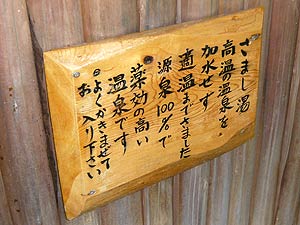 さまし湯
高温の温泉を
加水せず
適温までさました
源泉100%で
薬効の高い
温泉です
よくかきまぜて
お入り下さい